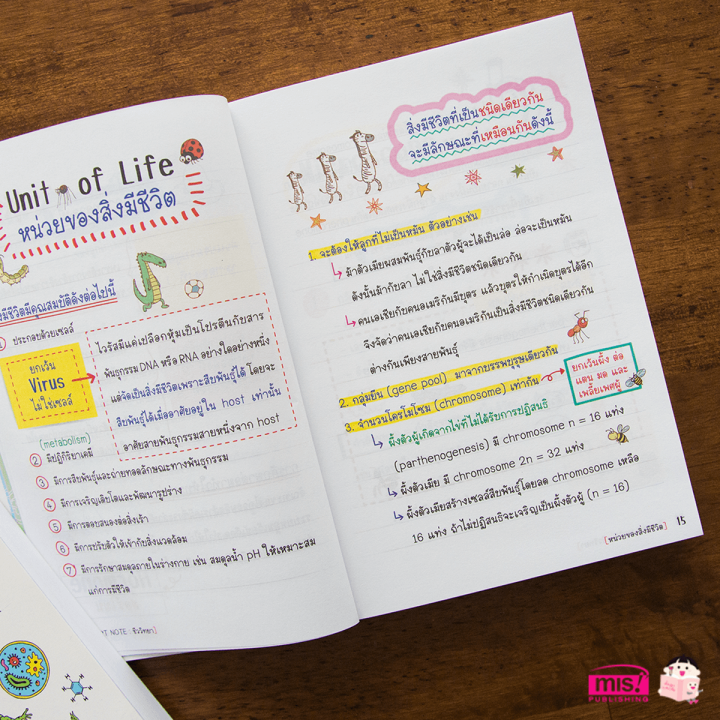 Unit of Life
หน่วยของสิ่งมีชีวิต
มีชีวิตมีคุณสมบัติดังต่อไปนี้
ประกอบด้วยเซลล์
ยกเว้น
Virus
ไม่ใช่เซลล์
ไวรัสมีแค่เปลือกหุ้มเป็นโปรตีนกับสาร
พันธุกรรม DNA หรือ RNA อย่างใดอย่างหนึ่ง
แต่จัดเป็นสิ่งมีชีวิตเพราะสืบพันธุ์ได้ โดยจะ
สืบพันธุ์ได้เมื่ออาศัยอยู่ใน host เท่านั้น
อาศัยสายพันธุกรรมสายหนึ่งจาก host
(metabolism)
2 มีปฏิกิริยาเคมี
3 มีการสืบพันธุ์และถ่ายทอดลักษณะทางพันธุกรรม
4 มีการเจริญเติบโตและพัฒนารูปร่าง
5 มีการตอบสนองต่อสิ่งเร้า
6 มีการปรับตัวให้เข้ากับสิ่งแวดล้อม
7 มีการรักษาสมดุลภายในร่างกาย เช่น สมดุลน้ำ pH ให้เหมาะสม
แก่การมีชีวิต
NOTE : ชีววิทยา]
สิ่งมีชีวิตที่เป็นชนิดเดียวกัน
จะมีลักษณะที่เหมือนกันดังนี้
1. จะต้องให้ลูกที่ไม่เป็นหมัน ตัวอย่างเช่น
ม้าตัวเมียผสมพันธุ์กับลาตัวผู้จะได้เป็นล่อ ล่อจะเป็นหมัน
ดังนั้นม้ากับลา ไม่ใช่สิ่งมีชีวิตชนิดเดียวกัน
คนเอเชียกับคนอเมริกันมีบุตร แล้วบุตรให้กำเนิดบุตรได้อีก
จึงจัดว่าคนเอเชียกับคนอเมริกันเป็นสิ่งมีชีวิตชนิดเดียวกัน
ต่างกันเพียงสายพันธุ์
2. กลุ่มยีน (gene pool) มาจากบรรพบุรุษเดียวกัน
3. จำนวนโครโมโซม (chromosome) เท่ากัน
ยกเว้นผึ้ง ต่อ
แตน มด และ
เพลี้ยเพศผู้
ผึ้งตัวผู้เกิดจากไข่ที่ไม่ได้รับการปฏิสนธิ
(parthenogenesis) มี chromosome n = 16 แท่ง
ผึ้งตัวเมีย มี chromosome 2n = 32 แท่ง
ผึ้งตัวเมียสร้างเซลล์สืบพันธุ์โดยลด chromosome เหลือ
16 แท่ง ถ้าไม่ปฏิสนธิจะเจริญเป็นผึ้งตัวผู้ (n = 16)
[หน่วยของสิ่งมีชีวิต] 15
mis!
PUBLISHING